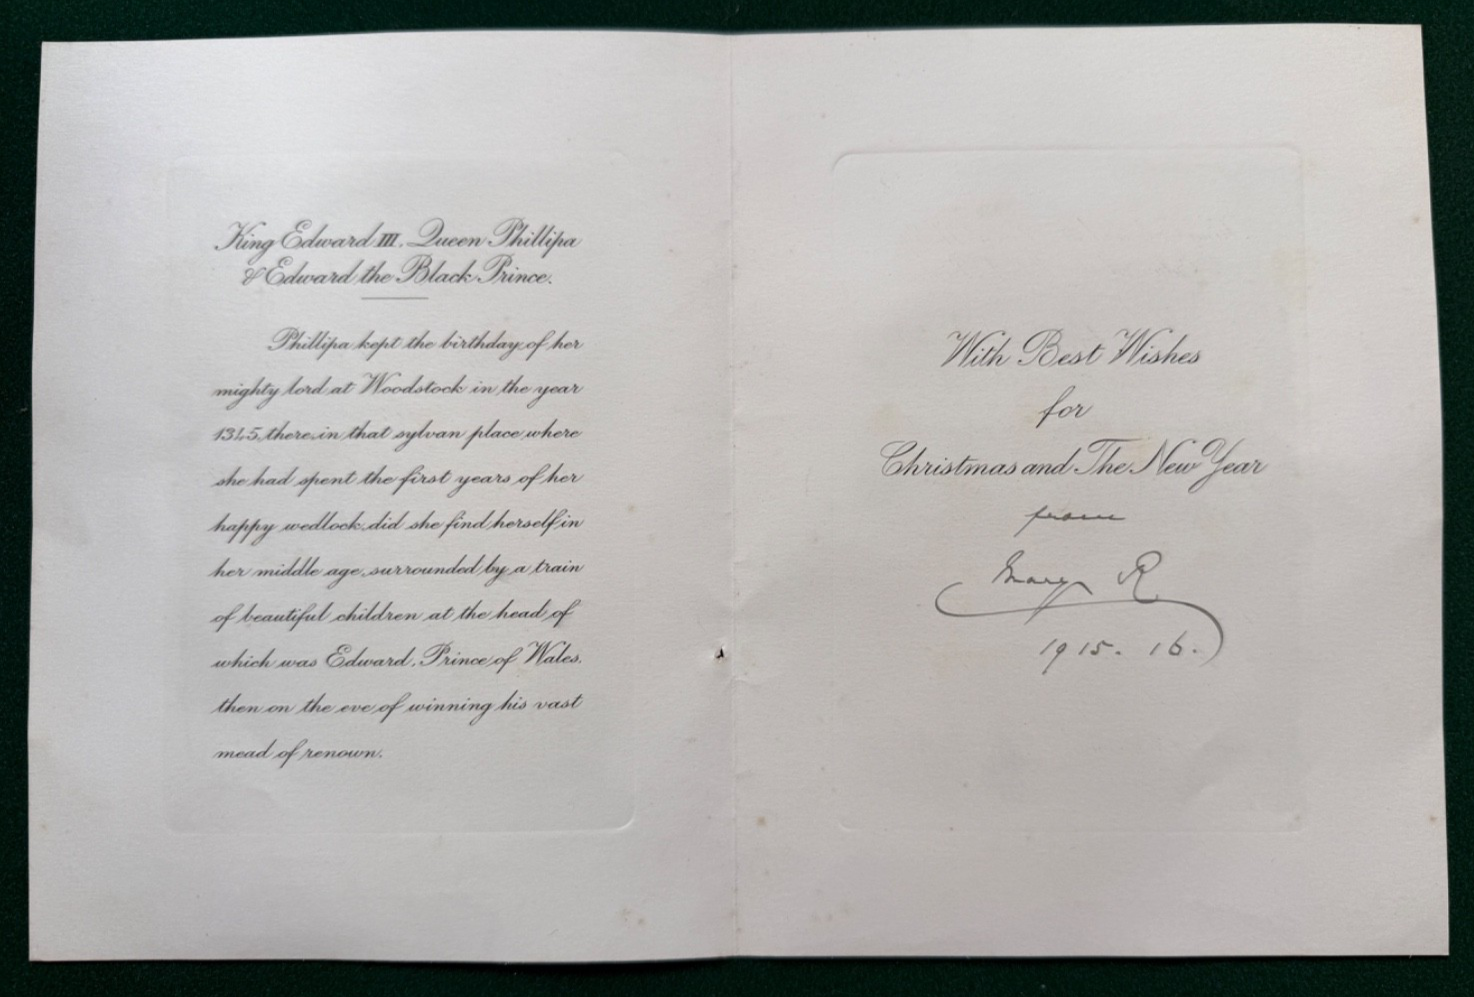 King Edward III. Queen Phillipa
& Edward the Black Prince.
Phillipa kept the birthday of her
mighty lord at Woodstock in the year
1345, there, in that sylvan place where
she had spent the first years of her
happy wedlock, did she find herself in
her middle age, surrounded by a train
of beautiful children at the head of
which was Edward, Prince of Wales,
then on the eve of winning his vast
mead of renown.
With Best Wishes
for
Christmas and The New Year
from
Mary R
1915. 16.